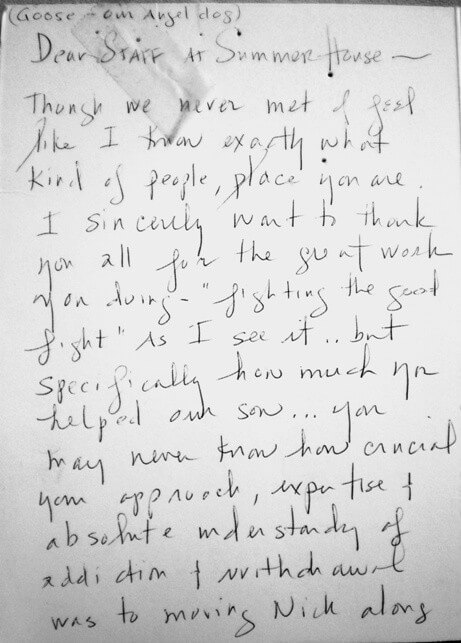 (Goose - our Angel dog)
Dear Staff at Summer House -
Though we never met I feel
like I know exactly what
kind of people, place you are.
I sincerely want to thank
you all for the great work
you doing - "fighting the good
fight" as I see it.. but
specifically how much you
helped our son... you
may never know how crucial
your approach, expertise +
absolute understanding of
addiction + withdrawal
was to moving Nick along